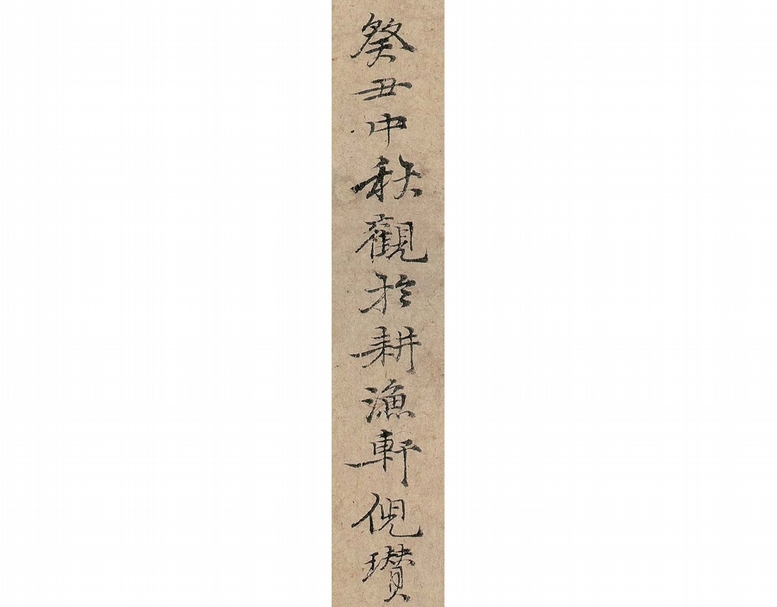 癸丑中秋觀於耕漁軒倪瓚